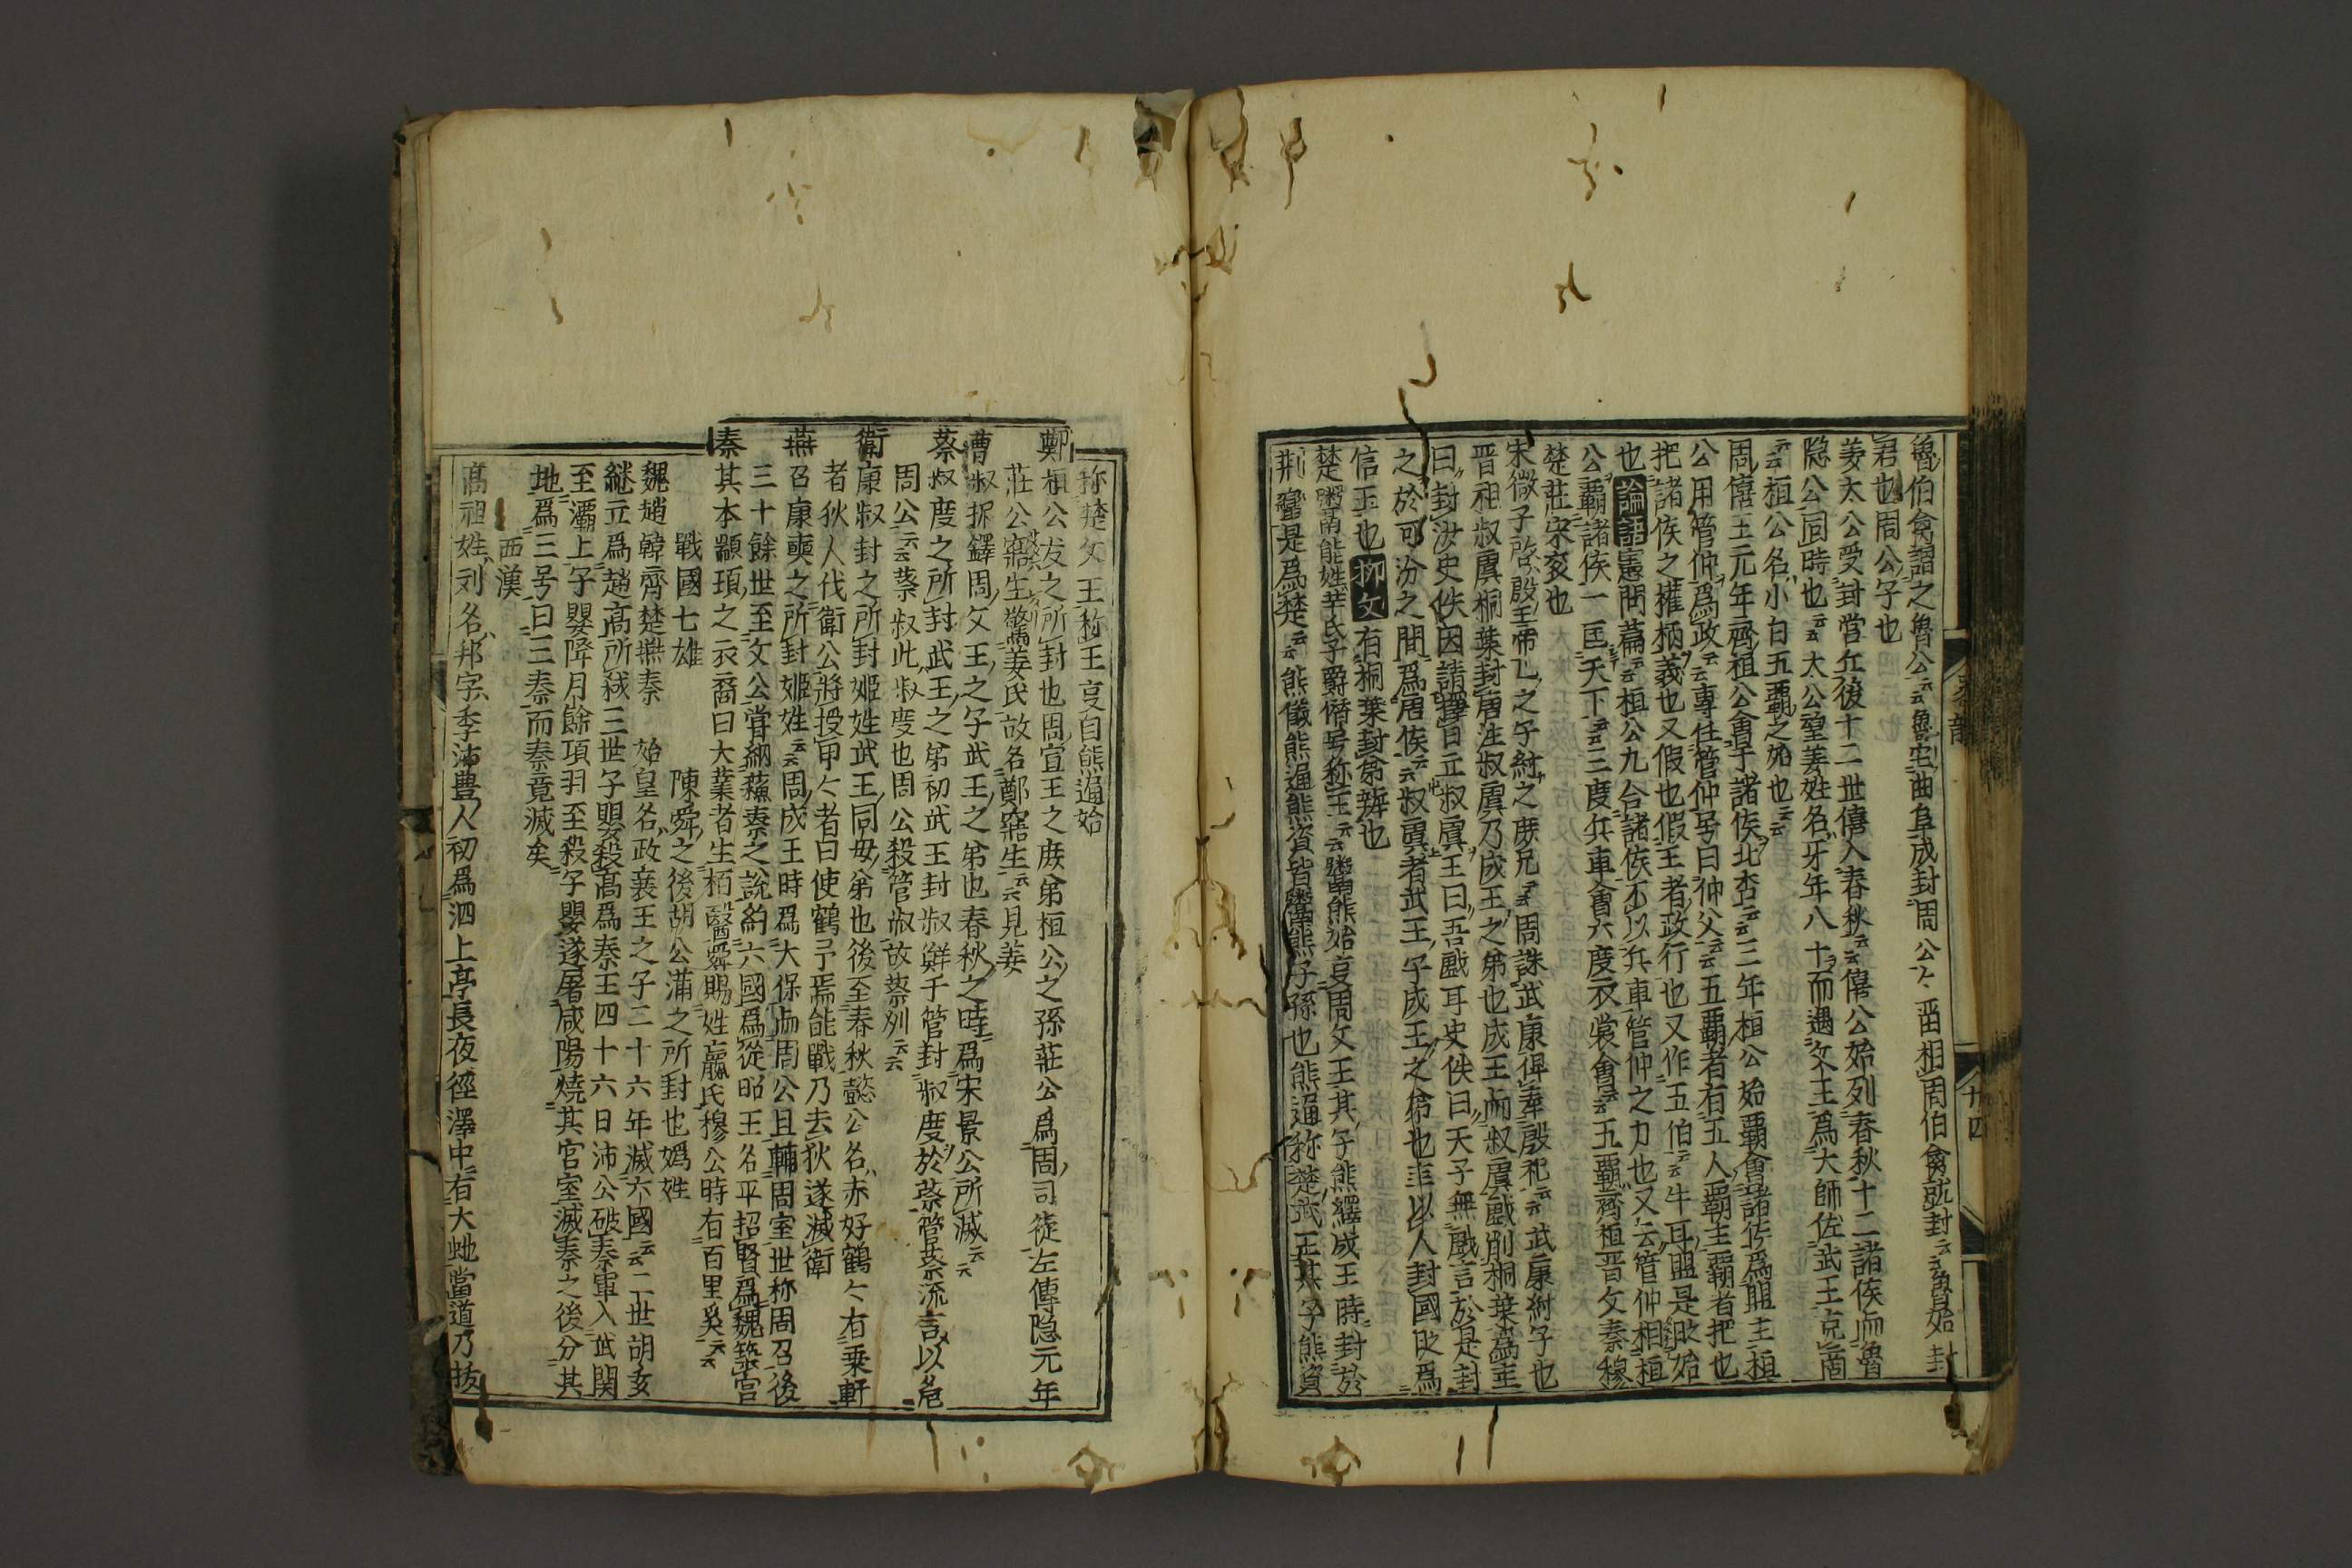 魯伯禽謂之魯公云云魯宅曲阜成封周公〻畄相周伯禽就封云云魯始封
君也周公字也
姜太公受封営丘後十二世僖入春秋云云僖公始列春秋十二諸侯而魯
隐公同時也云云太公望姜姓名牙年八十而遇文王爲大師佐武王克商
云云桓公名小白五覇之始也云云
周僖王元年齊桓公會于諸侯北杏云云三年桓公始覇會諸侯爲盟主桓
公用管仲爲政云云専任管仲号曰仲父云云五覇者有五人覇主覇者把也
把諸侯之権柄義也又假也假王者政行也又作五伯云云牛耳盟是時始
也論語憲問篇云云桓公九合諸侯不以兵車管仲之力也又云管仲相桓
公覇諸侯一匡天下云云三度兵車會六度衣裳會云云五覇齊桓晋文秦穆
楚莊宋襄也
宋微子啓殷王帝乙之子紂之庶兄云云周誅武康俾奉殷祀云云武康紂子也
晋祖叔虞桐葉封唐注叔虞乃成王之弟也成王而叔虞戯削桐葉爲圭
曰封汝史佚因請擇日立叔虞王曰吾戯耳史佚曰天子無戯言於是封
之於河汾之間爲唐侯云云叔虞者武王子成王之弟也圭以人封國時爲
信玉也柳文有桐葉封弟辨也
楚鬻熊姓芊氏子爵僭号称王云云鬻熊始㕝周文王其子熊繹成王時封於
荆蠻是爲楚云云熊儀熊通熊資皆鬻熊子孫也熊通称楚武王其子熊資
称楚文王称王㕝自熊通始
鄭桓公友之所封也周宣王之庶弟桓公之孫莊公爲周司徒左傳隐元年
莊公寤生驚姜氏故名鄭寤生云云見姜
曹叔振鐸周文王之子武王之弟也春秋之時爲宋景公所滅云云
蔡叔度之所封武王之弟初武王封叔鮮于管封叔度於蔡管蔡流言以危
周公云云蔡叔此叔度也周公殺管叔故蔡列云云
衛康叔封之所封姬姓武王同母弟也後至春秋懿公名赤好鶴〻有乗軒
者狄人伐衛公將授甲〻者曰使鶴予焉能戰乃去狄遂滅衛
燕召康奭之所封姬姓云云周成王時爲大保而周公且輔周室世称周召後
三十餘世至文公嘗納蘇秦之說約六國爲從昭王名平招賢爲隗築宮
秦其本顓頊之衣裔曰大業者生栢翳舜賜姓嬴氏穆公時有百里奚云云
戰國七雄 陳舜之後胡公蒲之所封也嬀姓
魏趙韓齊楚燕秦 始皇名政襄王之子二十六年滅六國云云二世胡亥
継立爲趙高所弒三世子嬰殺高爲秦王四十六日沛公破秦軍入武関
至灞上子嬰降月餘項羽至殺子嬰遂屠咸陽燒其宮室滅秦之後分其
地爲三号曰三秦而秦竟滅矣
西漢
高祖姓刘名邦字季沛豊人初爲泗上亭長夜徑澤中有大虵當道乃拔
廿四